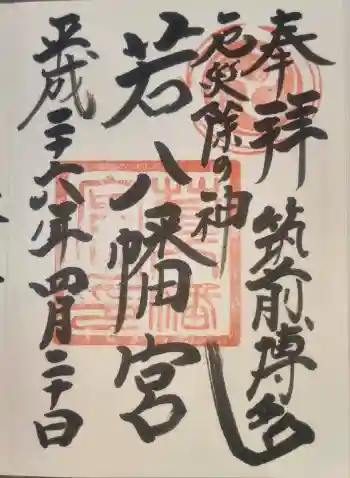 奉拝
筑前博多
厄災除の神
若八幡宮
平成二十六年四月二十日